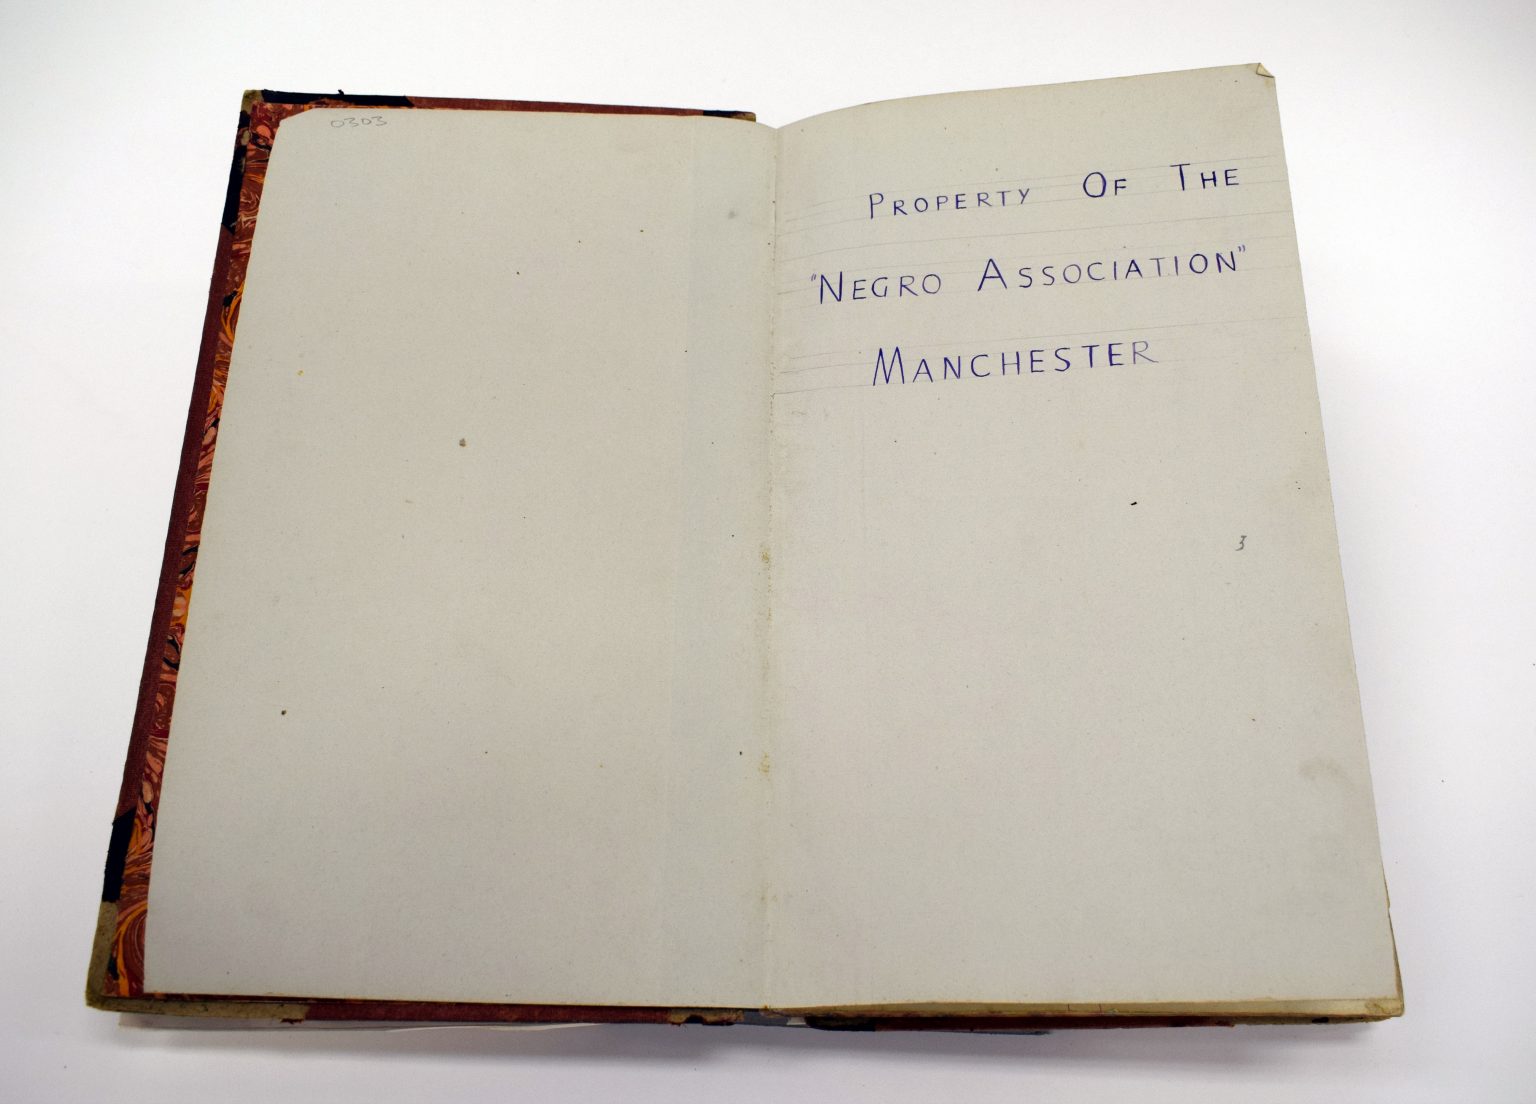 0303
PROPERTY OF THE
"NEGRO ASSOCIATION"
MANCHESTER
3